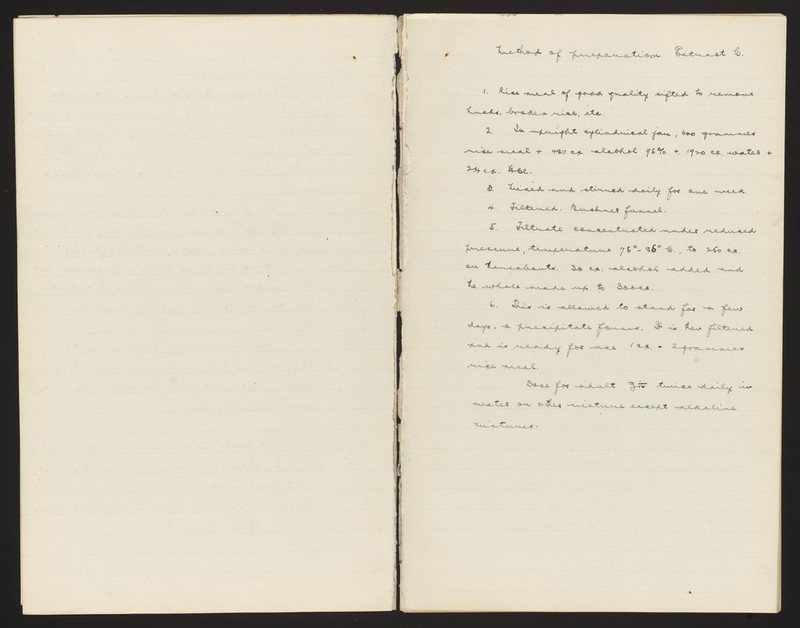 Method of preparation Extract C.
1. Rice meal of good quality sifted to remove
husks, broken rice, etc.
2. In upright cylindrical jar, 600 grammes
rice meal + 480 cc. alcohol 95% + 1920 cc. water +
24 cc. HCl.
3. Mixed and stirred daily for one week
4. Filtered. Buchner funnel.
5. Filtrate concentrated under reduced
pressure, temperature 75°-85° C., to 250 cc.
or thereabouts. 30 cc. alcohol added and
the whole made up to 300 cc.
6. This is allowed to stand for a few
days, a precipitate forms. It is then filtered
and is ready for use 1 cc. = 2 grammes
rice meal.
Dose for adult twice daily in
water or other mixture except alkaline
mixtures.